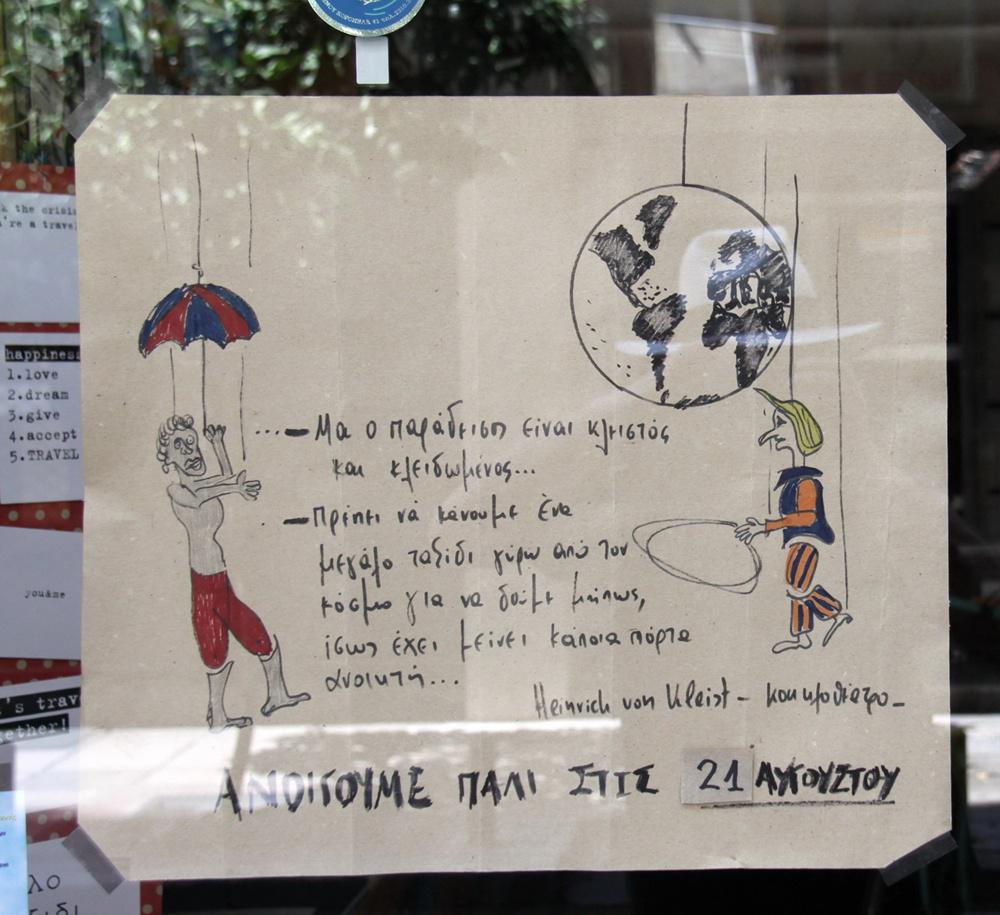 k the crisis
're a travel
happiness
1.love
2.dream
3.give
4.accept
5.TRAVEL
you&me
's trav
gether!
λο
ξιδι
...– Μα ο παράδεισος είναι κλειστός
και κλειδωμένος...
– Πρέπει να κάνουμε ένα
μεγάλο ταξίδι γύρω από τον
κόσμο για να δούμε μήπως,
ίσως έχει μείνει κάποια πόρτα
ανοικτή...
Heinrich von Kleist – κουκλοθέατρο –
ΑΝΟΙΓΟΥΜΕ ΠΑΛΙ ΣΤΙΣ 21 ΑΥΓΟΥΣΤΟΥ